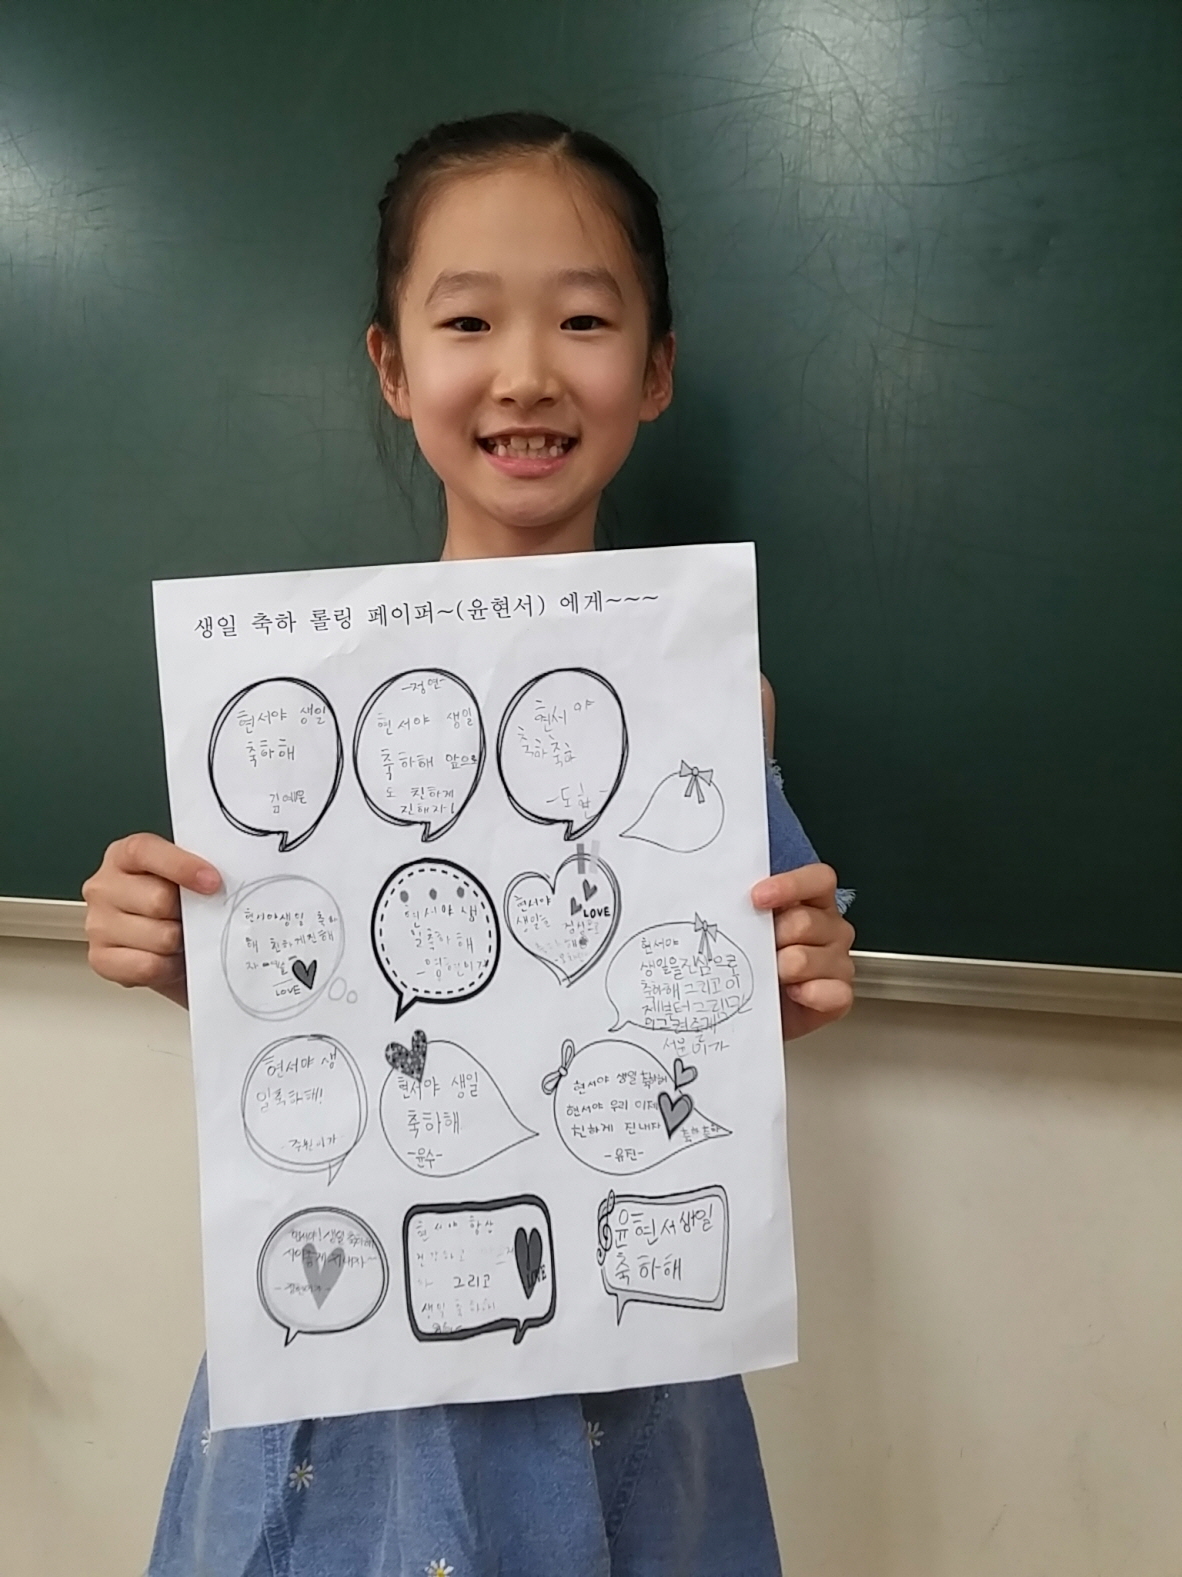 생일 축하 롤링 페이퍼~(윤현서) 에게~~~
현서야 생일
축하해
-정연-
현서야 생일
축하해 앞으로
도 친하게
진해자!
현서야
축하축하
-도현-
현서야생일 축하
해 친하게진해
LOVE
현서야 생
일축하 해
현서야
생일을
진심으로
LOVE
현서야
생일을진심으로
축하해 그리고 이
제부터그림
현서야 생
일축하해!
-주원이가
현서야 생일
축하해
-윤수-
현서야 생일 축하해
현서야 우리 이제
친하게 진내자
-유진-
현서야! 생일 축하해
현서야 항상
건강하고
그리고
생일 축하해
LOVE
윤현서생일
축하해